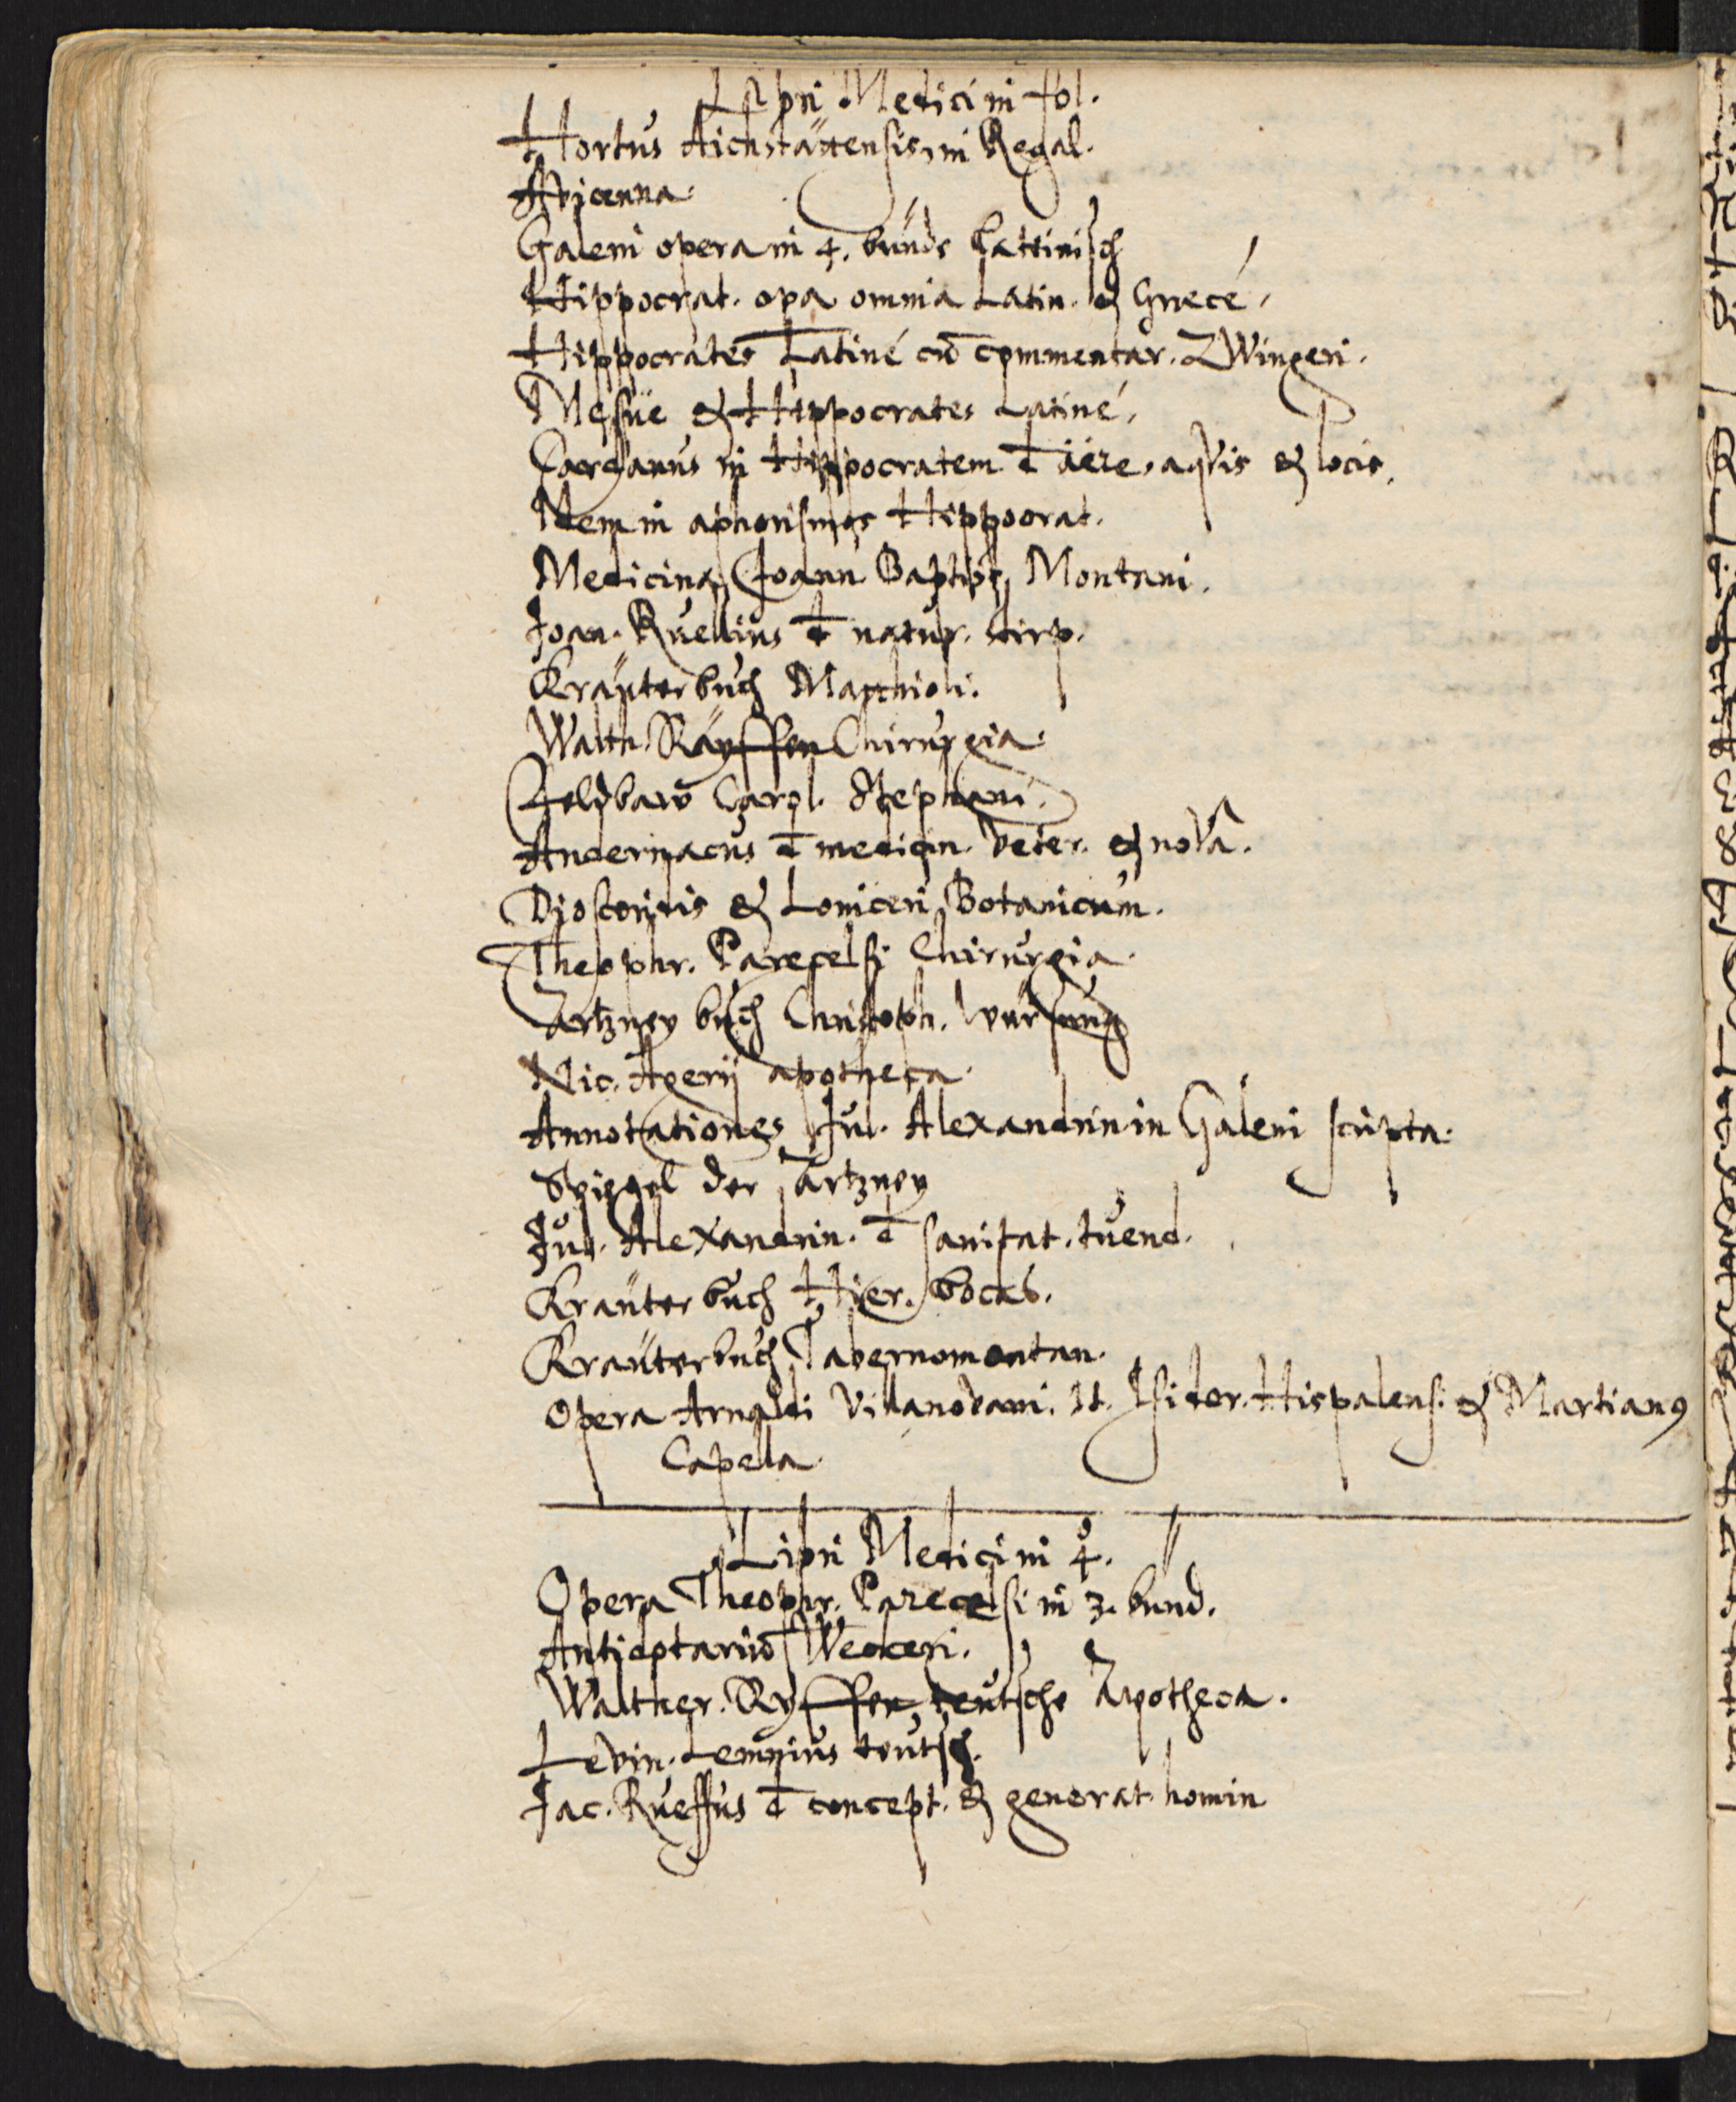 Libri Medici in fol.
Hortus Aichstättensis, in Regal.
Avicenna.
Galeni opera in 4. bünds Lattinisch
Hippocrat. opa omnia Latin. & Graecé,
Hippocrates Latiné cū commentar. ZWingeri.
Mesüe & Hippocrates Latiné,
Cardanus in Hippocratem d̄ äere, aqvis & locis.
Idem in aphorismos Hippocrat.
Medicina Joann Baptist Montani.
Joan. Ruellius d̄ natur. stirp.
Kraüterbuch Matthioli.
Walth. Räyffen Chirurgia.
Feldbaw Carol. Stephani.
Andernacus d̄ medicin. veter. & novâ.
Dioscoridis & Loniceri Botanicum.
Theophr. Parecelsi Chirurgia.
Artzney buch Christoph. Würsung
Nic. Agerij apotheca.
Annotationes Jul. Alexandrin in Galeni scripta.
Spiegel der Artzney
Jul. Alexandrin. d̄ sanitat. tuend.
Kraüter buch Hier. bocks.
Kraüterbuch Tabernomontan.
Opera Arnaldi Villanovani. It. Isidor. Hispalens. & Martian9
Capella.
Libri Medici in 4.
Opera Theophr. Parecelsi in 3. bund.
Antidotariū Weckeri.
Walther. Ryffen teutsche Apotheca.
Levin. Lemnius teutsch.
Jac. Rueffus d̄ concept. & generat. homin